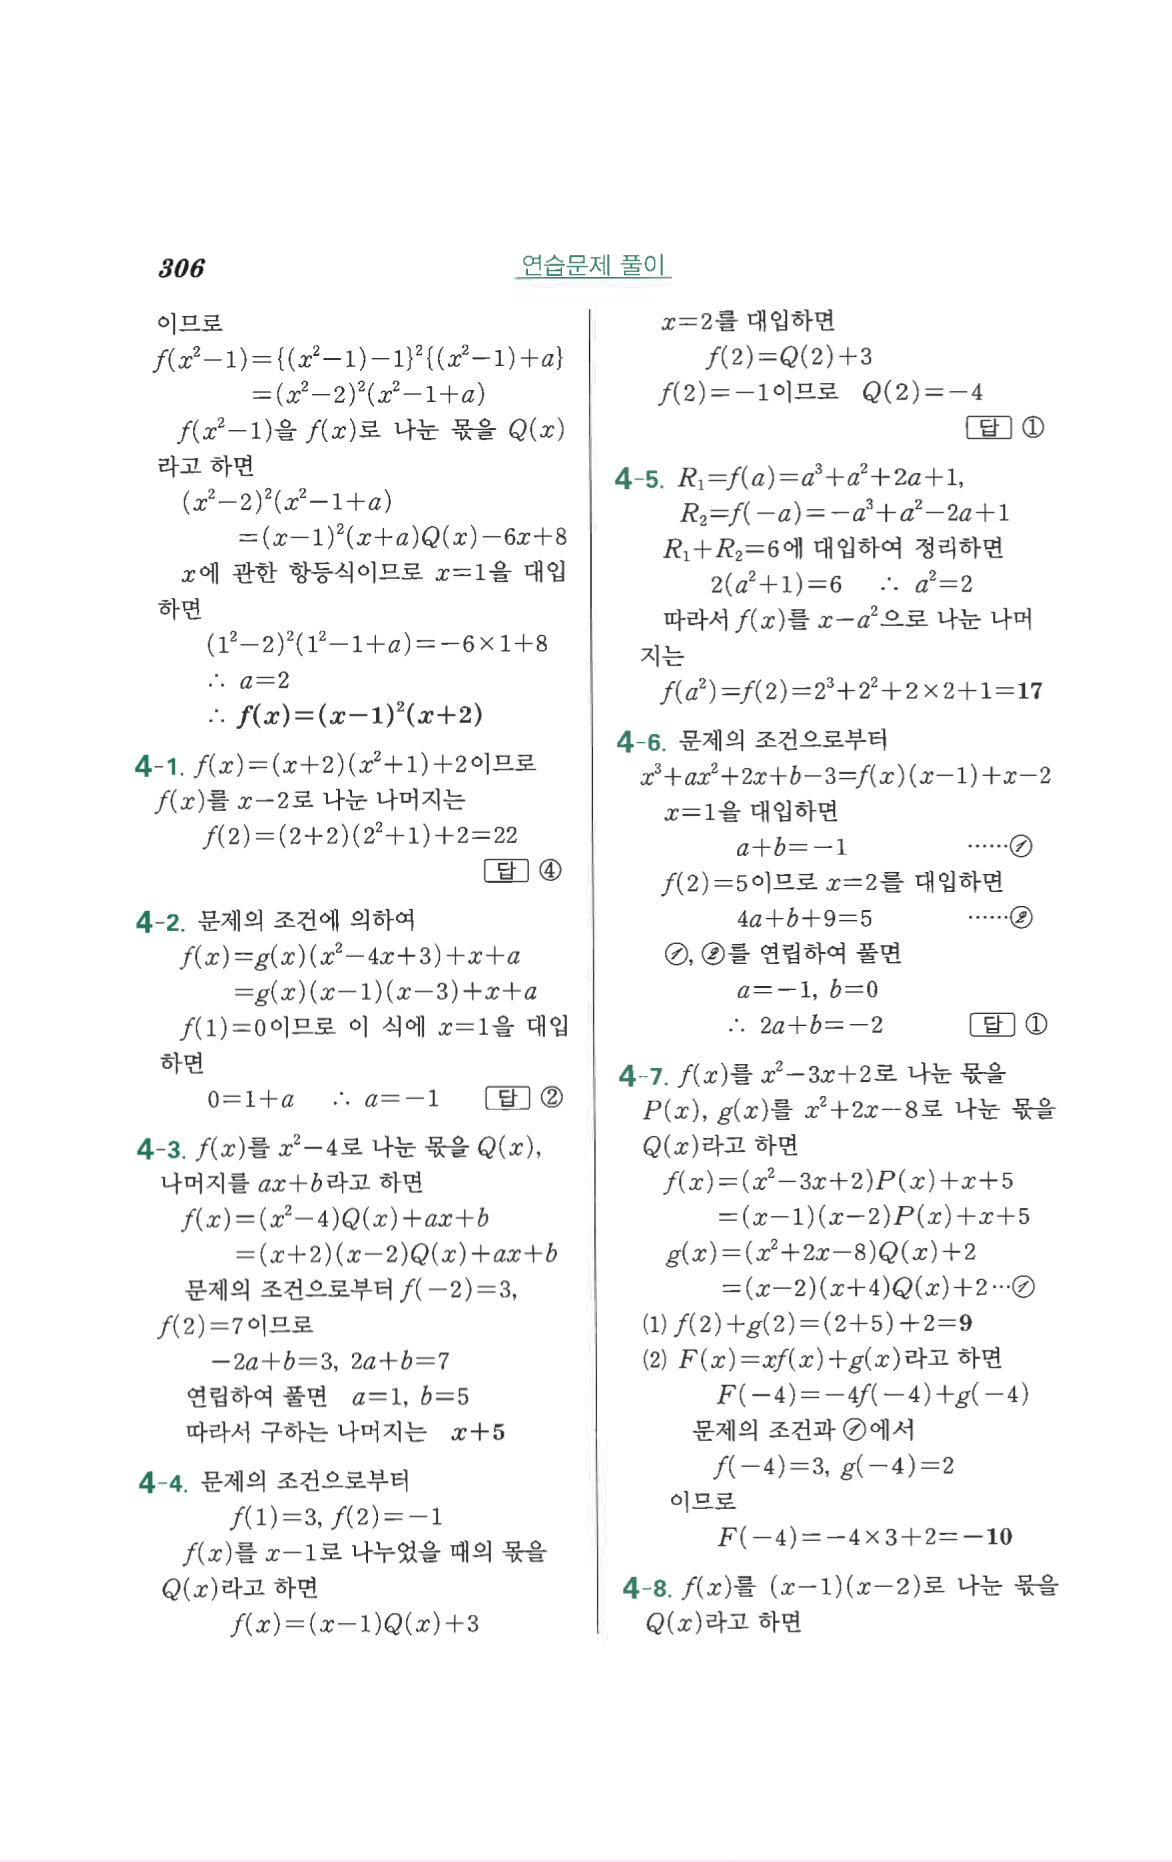 306
연습문제 풀이
이므로
f(x²−1)={(x²−1)−1}²{(x²−1)+a}
=(x²−2)²(x²−1+a)
f(x²−1)을 f(x)로 나눈 몫을 Q(x)
라고 하면
(x²−2)²(x²−1+a)
=(x−1)²(x+a)Q(x)−6x+8
x에 관한 항등식이므로 x=1을 대입
하면
(1²−2)²(1²−1+a)=−6×1+8
∴ a=2
∴ f(x)=(x−1)²(x+2)
4-1. f(x)=(x+2)(x²+1)+2이므로
f(x)를 x−2로 나눈 나머지는
f(2)=(2+2)(2²+1)+2=22
답 ④
4-2. 문제의 조건에 의하여
f(x)=g(x)(x²−4x+3)+x+a
=g(x)(x−1)(x−3)+x+a
f(1)=0이므로 이 식에 x=1을 대입
하면
0=1+a ∴ a=−1 답 ②
4-3. f(x)를 x²−4로 나눈 몫을 Q(x),
나머지를 ax+b라고 하면
f(x)=(x²−4)Q(x)+ax+b
=(x+2)(x−2)Q(x)+ax+b
문제의 조건으로부터 f(−2)=3,
f(2)=7이므로
−2a+b=3, 2a+b=7
연립하여 풀면 a=1, b=5
따라서 구하는 나머지는 x+5
4-4. 문제의 조건으로부터
f(1)=3, f(2)=−1
f(x)를 x−1로 나누었을 때의 몫을
Q(x)라고 하면
f(x)=(x−1)Q(x)+3
x=2를 대입하면
f(2)=Q(2)+3
f(2)=−1이므로 Q(2)=−4
답 ①
4-5. R₁=f(a)=a³+a²+2a+1,
R₂=f(−a)=−a³+a²−2a+1
R₁+R₂=6에 대입하여 정리하면
2(a²+1)=6 ∴ a²=2
따라서 f(x)를 x−a²으로 나눈 나머
지는
f(a²)=f(2)=2³+2²+2×2+1=17
4-6. 문제의 조건으로부터
x³+ax²+2x+b−3=f(x)(x−1)+x−2
x=1을 대입하면
a+b=−1 ……①
f(2)=5이므로 x=2를 대입하면
4a+b+9=5 ……②
①, ②를 연립하여 풀면
a=−1, b=0
∴ 2a+b=−2 답 ①
4-7. f(x)를 x²−3x+2로 나눈 몫을
P(x), g(x)를 x²+2x−8로 나눈 몫을
Q(x)라고 하면
f(x)=(x²−3x+2)P(x)+x+5
=(x−1)(x−2)P(x)+x+5
g(x)=(x²+2x−8)Q(x)+2
=(x−2)(x+4)Q(x)+2…①
(1) f(2)+g(2)=(2+5)+2=9
(2) F(x)=xf(x)+g(x)라고 하면
F(−4)=−4f(−4)+g(−4)
문제의 조건과 ①에서
f(−4)=3, g(−4)=2
이므로
F(−4)=−4×3+2=−10
4-8. f(x)를 (x−1)(x−2)로 나눈 몫을
Q(x)라고 하면